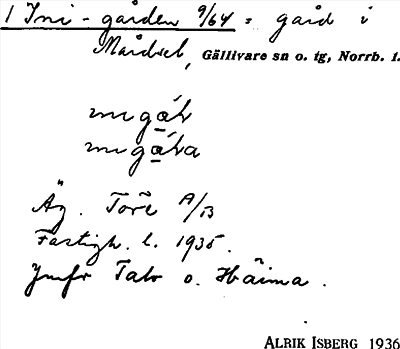 1 Ini-gården 9/64 = gård i
Mårdsel, Gällivare sn o. tg, Norrb. l.
Äg. Tore A/13
Fastigh. l. 1935.
Jmfr Talo o. Haima.
ALRIK ISBERG 1936